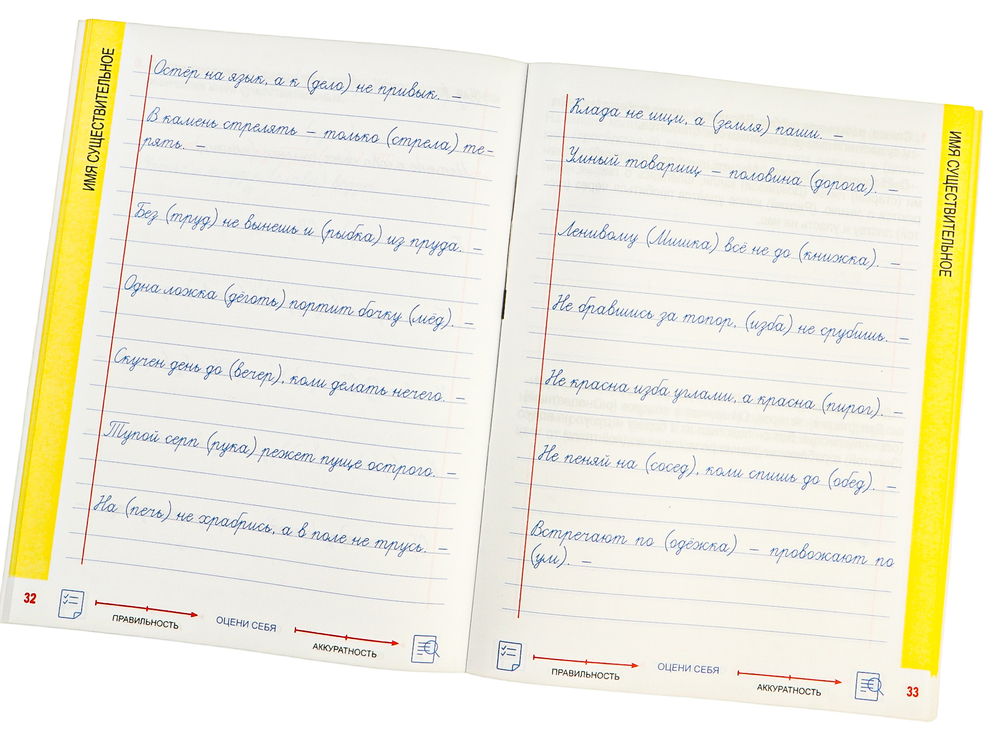 ИМЯ СУЩЕСТВИТЕЛЬНОЕ
Остёр на язык, а к (дело) не привык. –
В камень стрелять – только (стрела) те-
рять. –
Без (труд) не вынешь и (рыбка) из пруда. –
Одна ложка (дёготь) портит бочку (мёд). –
Скучен день до (вечер), коли делать нечего. –
Тупой серп (рука) режет пуще острого. –
На (печь) не храбрись, а в поле не трусь. –
32
ПРАВИЛЬНОСТЬ
ОЦЕНИ СЕБЯ
АККУРАТНОСТЬ
ИМЯ СУЩЕСТВИТЕЛЬНОЕ
Клада не ищи, а (земля) паши. –
Умный товарищ – половина (дорога). –
Ленивому (Мишка) всё не до (книжка). –
Не бравшись за топор, (изба) не срубишь. –
Не красна изба углами, а красна (пирог). –
Не пеняй на (сосед), коли спишь до (обед). –
Встречают по (одёжка) – провожают по
(ум). –
ПРАВИЛЬНОСТЬ
ОЦЕНИ СЕБЯ
АККУРАТНОСТЬ
33